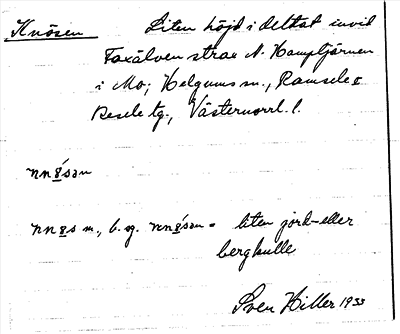 Knösen Liten höjd i delkat invid
Faxälven strax N. Kamptjärnen
i Mo; Helgums sn., Ramsele o
Resele tg., Västernorrl. l.
nnösən
nnøs m., b. sg. nnøsən = liten jord- eller
bergkulle
Sven Hiller 1933